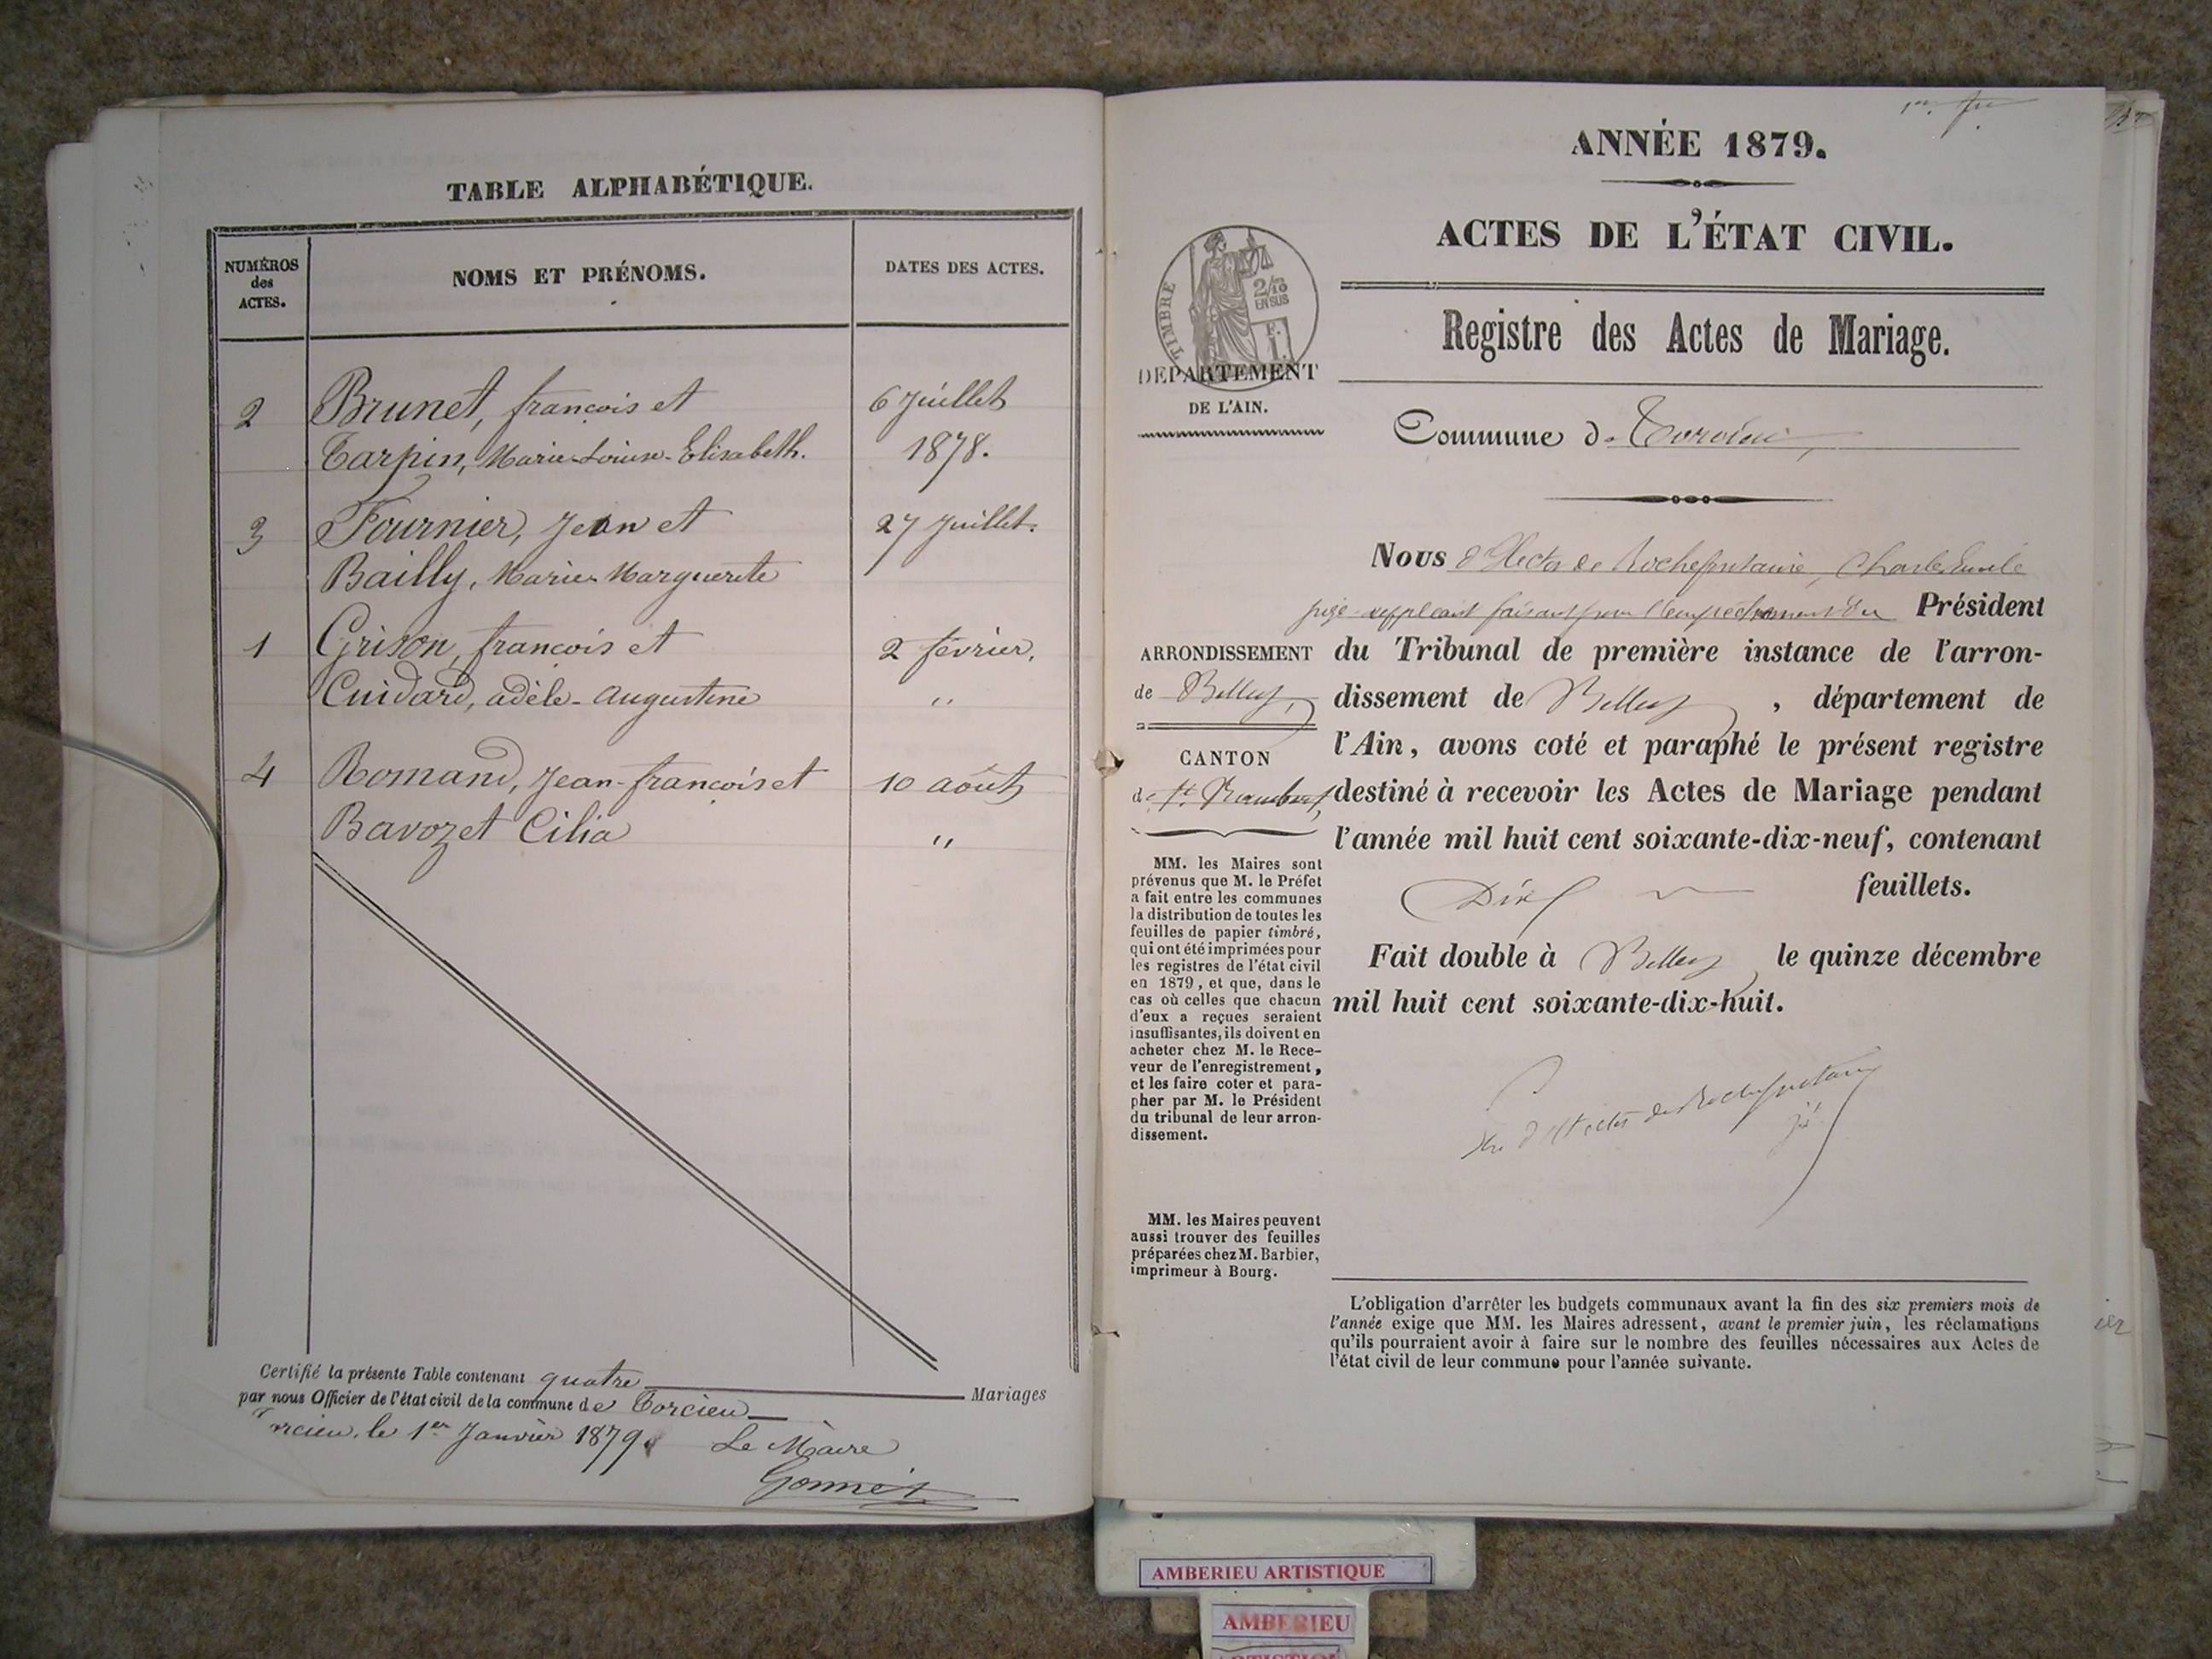 TABLE ALPHABÉTIQUE.
NUMÉROS
des
ACTES.
NOMS ET PRÉNOMS.
DATES DES ACTES.
2 Brunet, françois et 6 Juillet
Tarpin, Marie-Louise-Elisabeth. 1878.
3 Fournier, Jean et 27 Juillet.
Bailly, Marie-Marguerite
1 Grison, françois et 2 février.
Cuidard, adèle-augustine "
4 Romand, Jean-françois et 10 août
Bavozet Cilia "
Certifié la présente Table contenant quatre Mariages
par nous Officier de l'état civil de la commune de Torcieu
Torcieu, le 1er Janvier 1879. Le Maire
Gonnet
ANNÉE 1879.
ACTES DE L'ÉTAT CIVIL.
Registre des Actes de Mariage.
TIMBRE
2/10
EN SUS
F.
1.
DEPARTEMENT
DE L'AIN.
Commune de Torcieu
ARRONDISSEMENT
de Belley,
CANTON
de St. Rambert,
MM. les Maires sont
prévenus que M. le Préfet
a fait entre les communes
la distribution de toutes les
feuilles de papier timbré,
qui ont été imprimées pour
les registres de l'état civil
en 1879, et que, dans le
cas où celles que chacun
d'eux a reçues seraient
insuffisantes, ils doivent en
acheter chez M. le Rece-
veur de l'enregistrement,
et les faire coter et para-
pher par M. le Président
du tribunal de leur arron-
dissement.
MM. les Maires peuvent
aussi trouver des feuilles
préparées chez M. Barbier,
imprimeur à Bourg.
Nous d'Hector de Rochefontaine, Charles Emile
juge suppléant faisant pour l'empêchement du Président
du Tribunal de première instance de l'arron-
dissement de Belley, département de
l'Ain, avons coté et paraphé le présent registre
destiné à recevoir les Actes de Mariage pendant
l'année mil huit cent soixante-dix-neuf, contenant
Dix feuillets.
Fait double à Belley le quinze décembre
mil huit cent soixante-dix-huit.
d'Hector de Rochefontaine
L'obligation d'arrêter les budgets communaux avant la fin des six premiers mois de
l'année exige que MM. les Maires adressent, avant le premier juin, les réclamations
qu'ils pourraient avoir à faire sur le nombre des feuilles nécessaires aux Actes de
l'état civil de leur commune pour l'année suivante.
AMBERIEU ARTISTIQUE
AMBERIEU
ARTISTIQUE